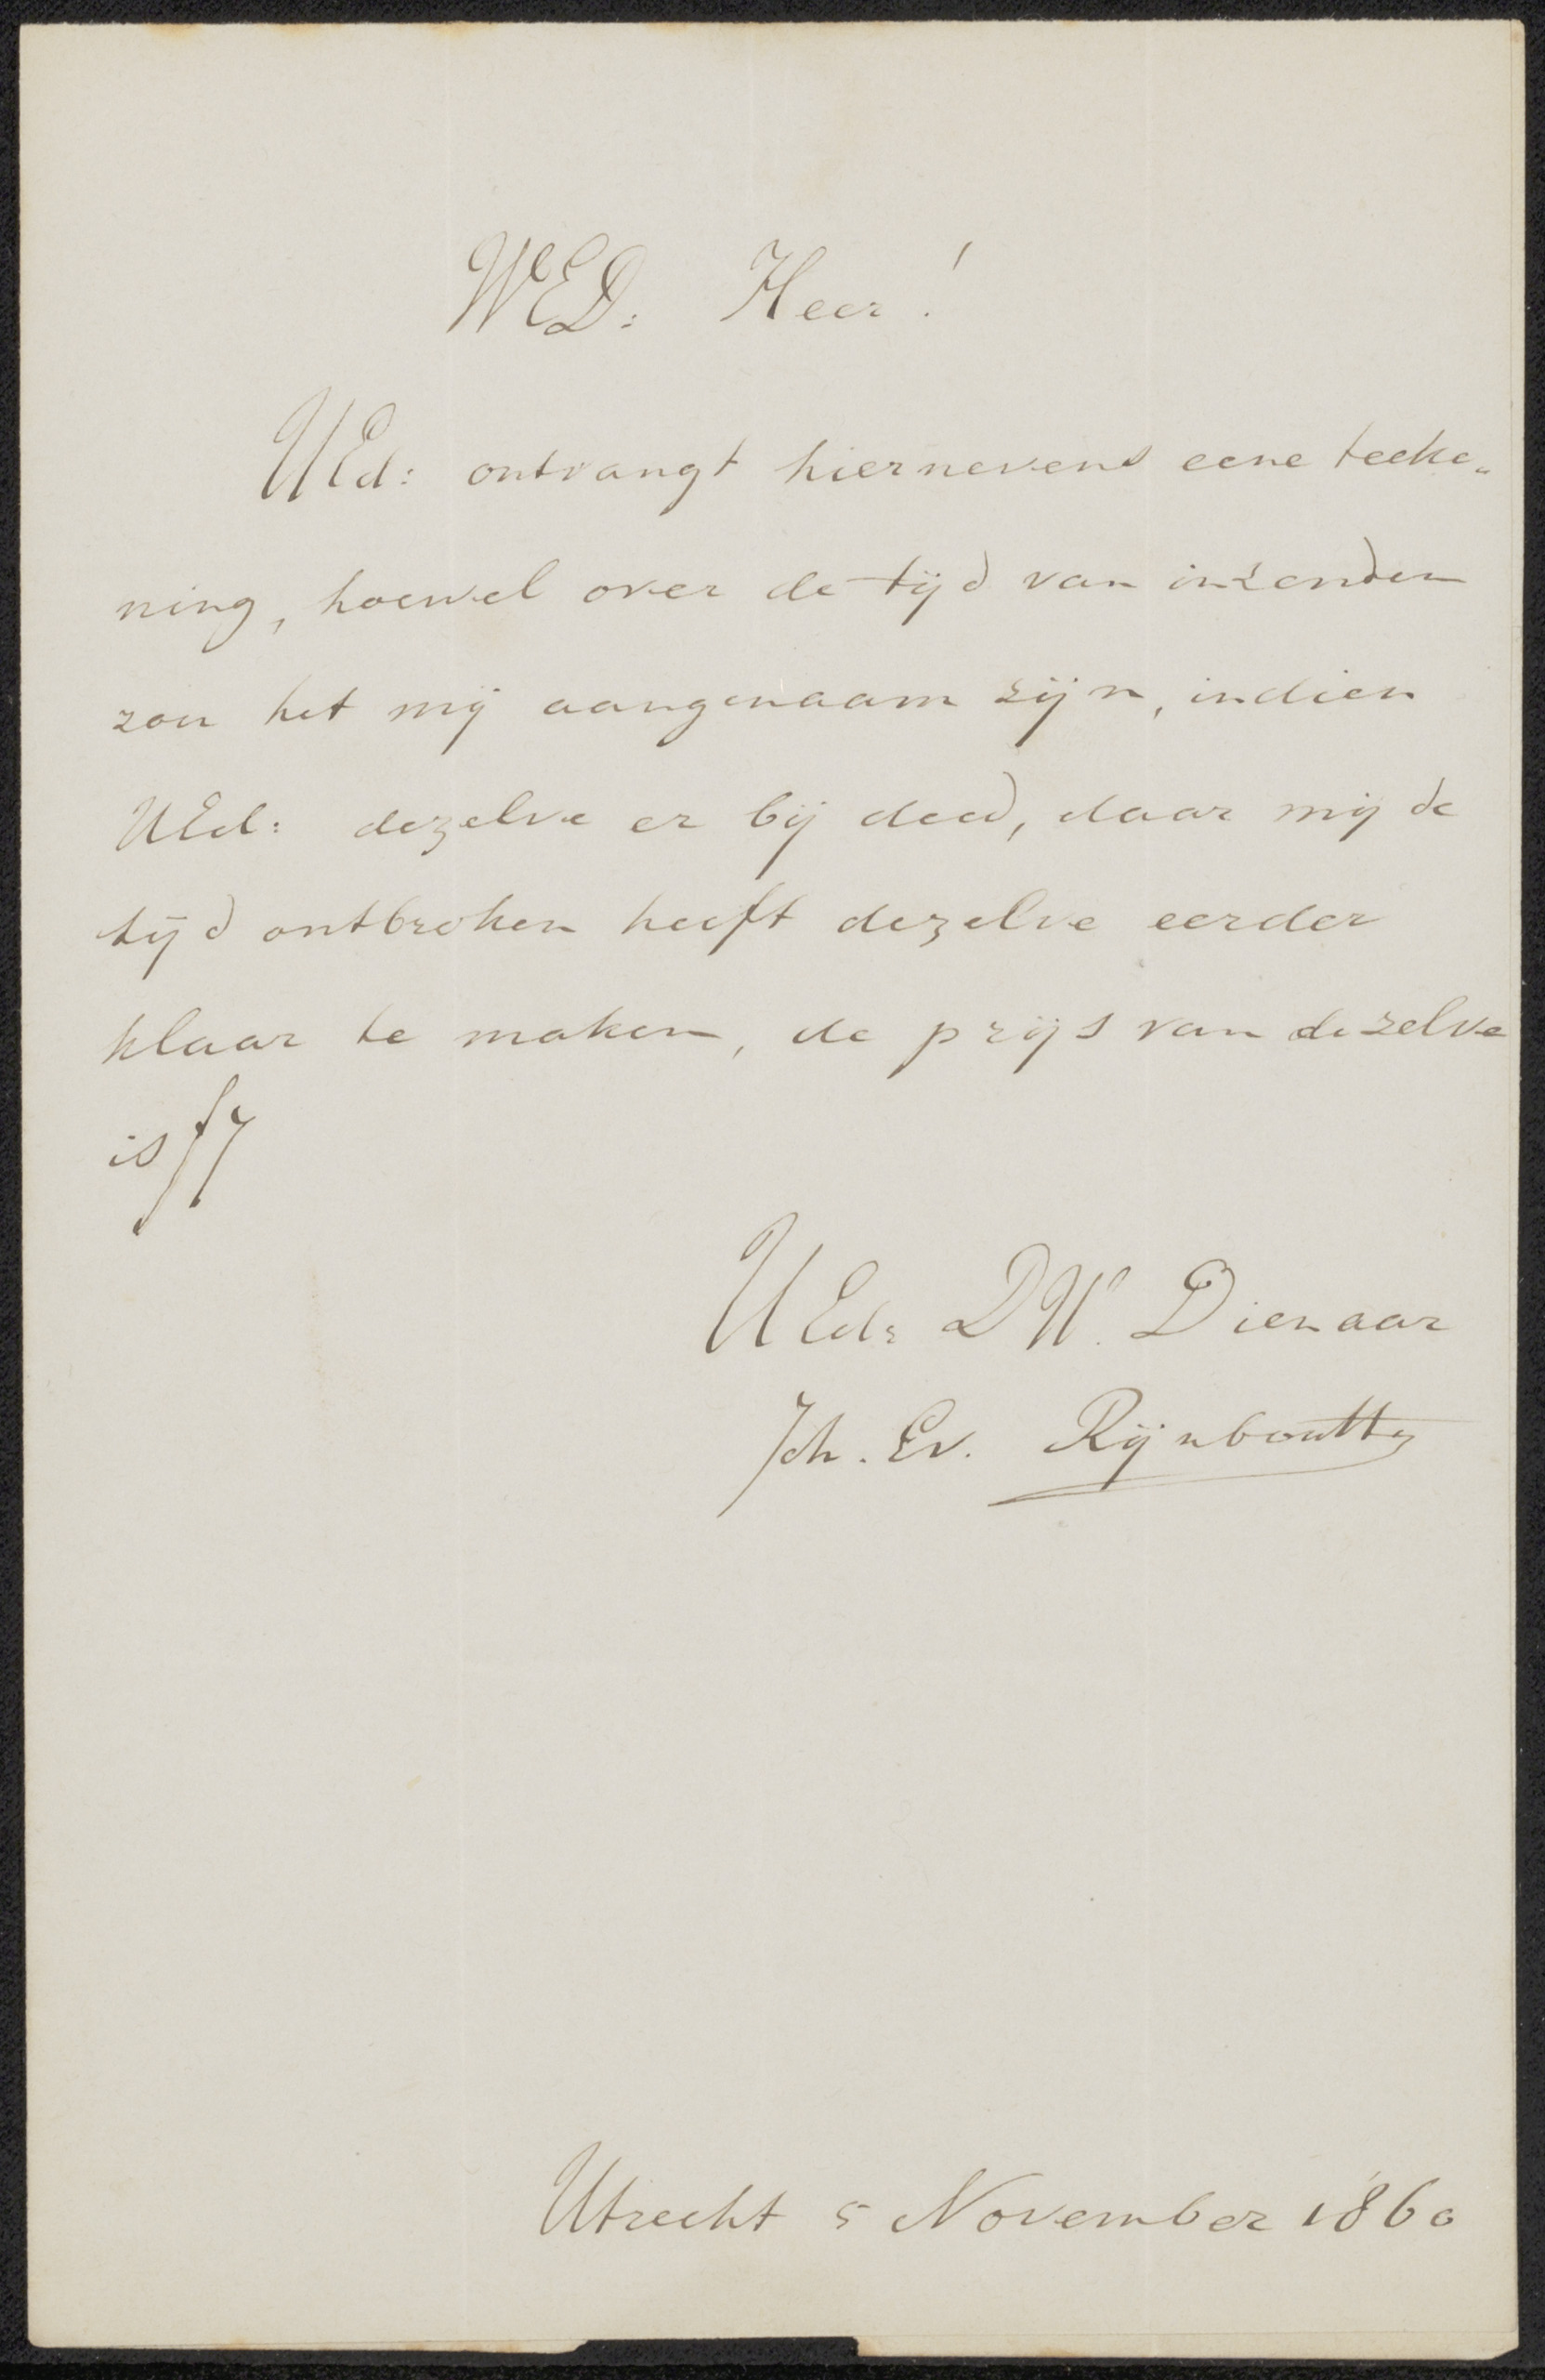 WED: Heer!
UEd: ontvangt hiernevens eene teeke„
ning, hoewel over de tijd van inzenden
zou het mij aangenaam zijn, indien
UEd: dezelve er bij deed, daar mij de
tijd ontbroken heeft dezelve eerder
klaar te maken, de prijs van dezelve
is f7
UEd: DW. Dienaar
Joh. Ev. Rijnboutt
Utrecht 5 November 1860